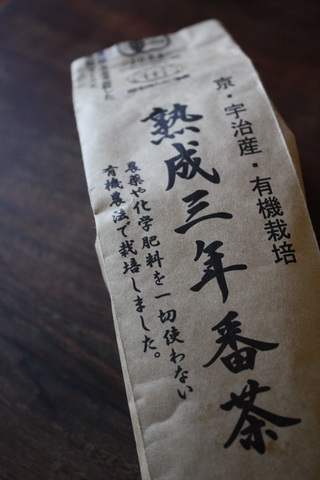 京・宇治産・有機栽培
熟成三年番茶
農薬や化学肥料を一切使わない
有機農法で栽培しました。